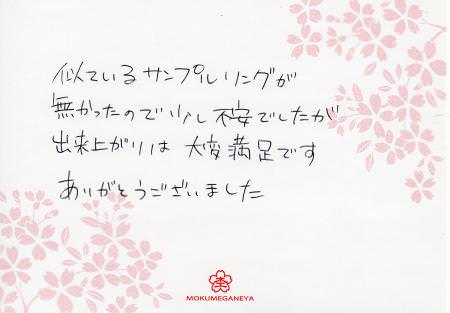 似ているサンプルリングが
無かったので少し不安でしたが
出来上がりは 大変満足です
ありがとうございました
MOKUMEGANEYA